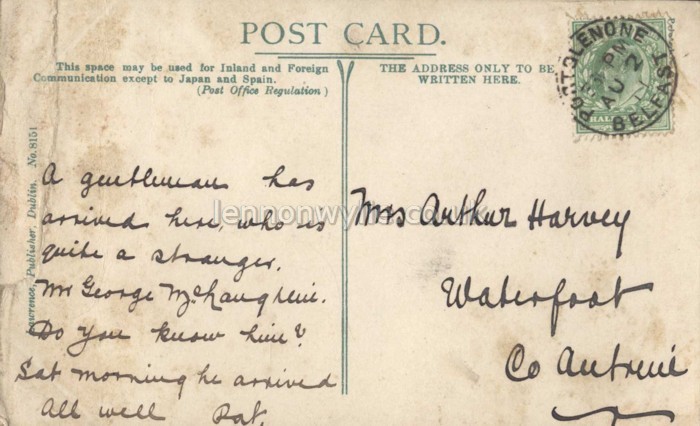 POST CARD.
This space may be used for Inland and Foreign
Communication except to Japan and Spain.
(Post Office Regulation)
THE ADDRESS ONLY TO BE
WRITTEN HERE.
PORTGLENONE
PM
AU 2
BELFAST
HALF
Lawrence, Publisher, Dublin. No. 8151
lennonwylie.co.uk
A gentleman has
arrived here, who is
quite a stranger.
Mr George
Do you know him?
Sat morning he arrived
All well Pat.
Mrs Arthur Harvey
Waterfoot
Co Antrim